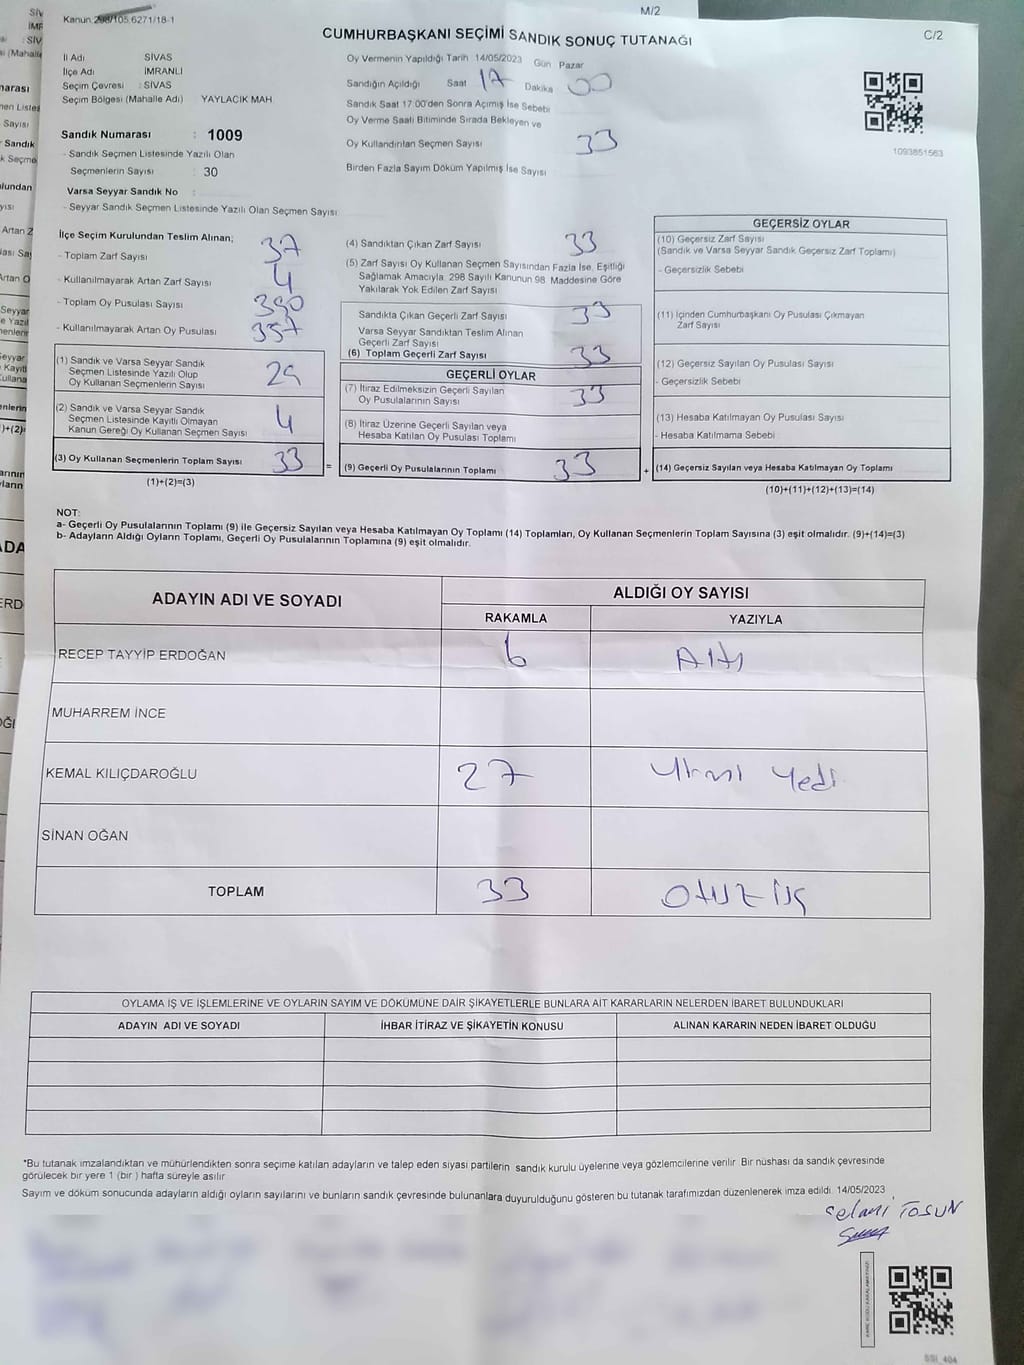 M/2
Kanun 298/105 6271/18-1
CUMHURBAŞKANI SEÇİMİ SANDIK SONUÇ TUTANAĞI
C/2
İl Adı SİVAS
İlçe Adı İMRANLI
Seçim Çevresi : SİVAS
Seçim Bölgesi (Mahalle Adı) YAYLACIK MAH
Sandık Numarası : 1009
- Sandık Seçmen Listesinde Yazılı Olan
Seçmenlerin Sayısı : 30
Varsa Seyyar Sandık No :
- Seyyar Sandık Seçmen Listesinde Yazılı Olan Seçmen Sayısı
Oy Vermenin Yapıldığı Tarih 14/05/2023 Gün Pazar
Sandığın Açıldığı Saat 17 Dakika 00
Sandık Saat 17:00'den Sonra Açımış İse Sebebi
Oy Verme Saati Bitiminde Sırada Bekleyen ve
Oy Kullandırılan Seçmen Sayısı 33
Birden Fazla Sayım Döküm Yapılmış İse Sayısı
1093851563
İlçe Seçim Kurulundan Teslim Alınan;
- Toplam Zarf Sayısı 37
- Kullanılmayarak Artan Zarf Sayısı 4
- Toplam Oy Pusulası Sayısı 390
- Kullanılmayarak Artan Oy Pusulası 357
(1) Sandık ve Varsa Seyyar Sandık
Seçmen Listesinde Yazılı Olup
Oy Kullanan Seçmenlerin Sayısı 29
(2) Sandık ve Varsa Seyyar Sandık
Seçmen Listesinde Kayıtlı Olmayan
Kanun Gereği Oy Kullanan Seçmen Sayısı 4
(3) Oy Kullanan Seçmenlerin Toplam Sayısı 33
(1)+(2)=(3)
(4) Sandıktan Çıkan Zarf Sayısı 33
(5) Zarf Sayısı Oy Kullanan Seçmen Sayısından Fazla İse, Eşitliği
Sağlamak Amacıyla 298 Sayılı Kanunun 98 Maddesine Göre
Yakılarak Yok Edilen Zarf Sayısı
Sandıkta Çıkan Geçerli Zarf Sayısı 33
Varsa Seyyar Sandıktan Teslim Alınan
Geçerli Zarf Sayısı
(6) Toplam Geçerli Zarf Sayısı 33
GEÇERLİ OYLAR
(7) İtiraz Edilmeksizin Geçerli Sayılan
Oy Pusulalarının Sayısı 33
(8) İtiraz Üzerine Geçerli Sayılan veya
Hesaba Katılan Oy Pusulası Toplamı
= (9) Geçerli Oy Pusulalarının Toplamı 33 +
GEÇERSİZ OYLAR
(10) Geçersiz Zarf Sayısı
(Sandık ve Varsa Seyyar Sandık Geçersiz Zarf Toplamı)
- Geçersizlik Sebebi
(11) İçinden Cumhurbaşkanı Oy Pusulası Çıkmayan
Zarf Sayısı
(12) Geçersiz Sayılan Oy Pusulası Sayısı
- Geçersizlik Sebebi
(13) Hesaba Katılmayan Oy Pusulası Sayısı
- Hesaba Katılmama Sebebi
(14) Geçersiz Sayılan veya Hesaba Katılmayan Oy Toplamı
(10)+(11)+(12)+(13)=(14)
NOT:
a- Geçerli Oy Pusulalarının Toplamı (9) ile Geçersiz Sayılan veya Hesaba Katılmayan Oy Toplamı (14) Toplamları, Oy Kullanan Seçmenlerin Toplam Sayısına (3) eşit olmalıdır. (9)+(14)=(3)
b- Adayların Aldığı Oyların Toplamı, Geçerli Oy Pusulalarının Toplamına (9) eşit olmalıdır.
ADAYIN ADI VE SOYADI ALDIĞI OY SAYISI
RAKAMLA YAZIYLA
RECEP TAYYİP ERDOĞAN 6 Altı
MUHARREM İNCE
KEMAL KILIÇDAROĞLU 27 Yirmi Yedi
SİNAN OĞAN
TOPLAM 33 Otuz üç
OYLAMA İŞ VE İŞLEMLERİNE VE OYLARIN SAYIM VE DÖKÜMÜNE DAİR ŞİKAYETLERLE BUNLARA AİT KARARLARIN NELERDEN İBARET BULUNDUKLARI
ADAYIN ADI VE SOYADI İHBAR İTİRAZ VE ŞİKAYETİN KONUSU ALINAN KARARIN NEDEN İBARET OLDUĞU
*Bu tutanak imzalandıktan ve mühürlendikten sonra seçime katılan adayların ve talep eden siyasi partilerin sandık kurulu üyelerine veya gözlemcilerine verilir Bir nüshası da sandık çevresinde
görülecek bir yere 1 (bir) hafta süreyle asılır
Sayım ve döküm sonucunda adayların aldığı oyların sayılarını ve bunların sandık çevresinde bulunanlara duyurulduğunu gösteren bu tutanak tarafımızdan düzenlenerek imza edildi. 14/05/2023
Selami TOSUN
SSI_404